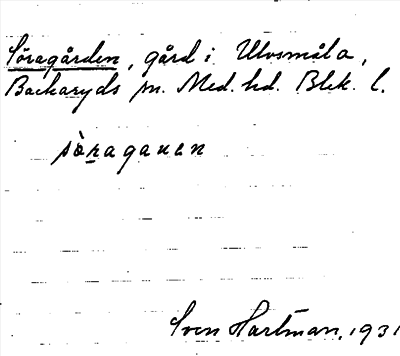 Söragården, gård i Ulvsmåla,
Backaryds sn. Med. hd. Blek. l.
sòragaɹen
Sven Hartman, 1931